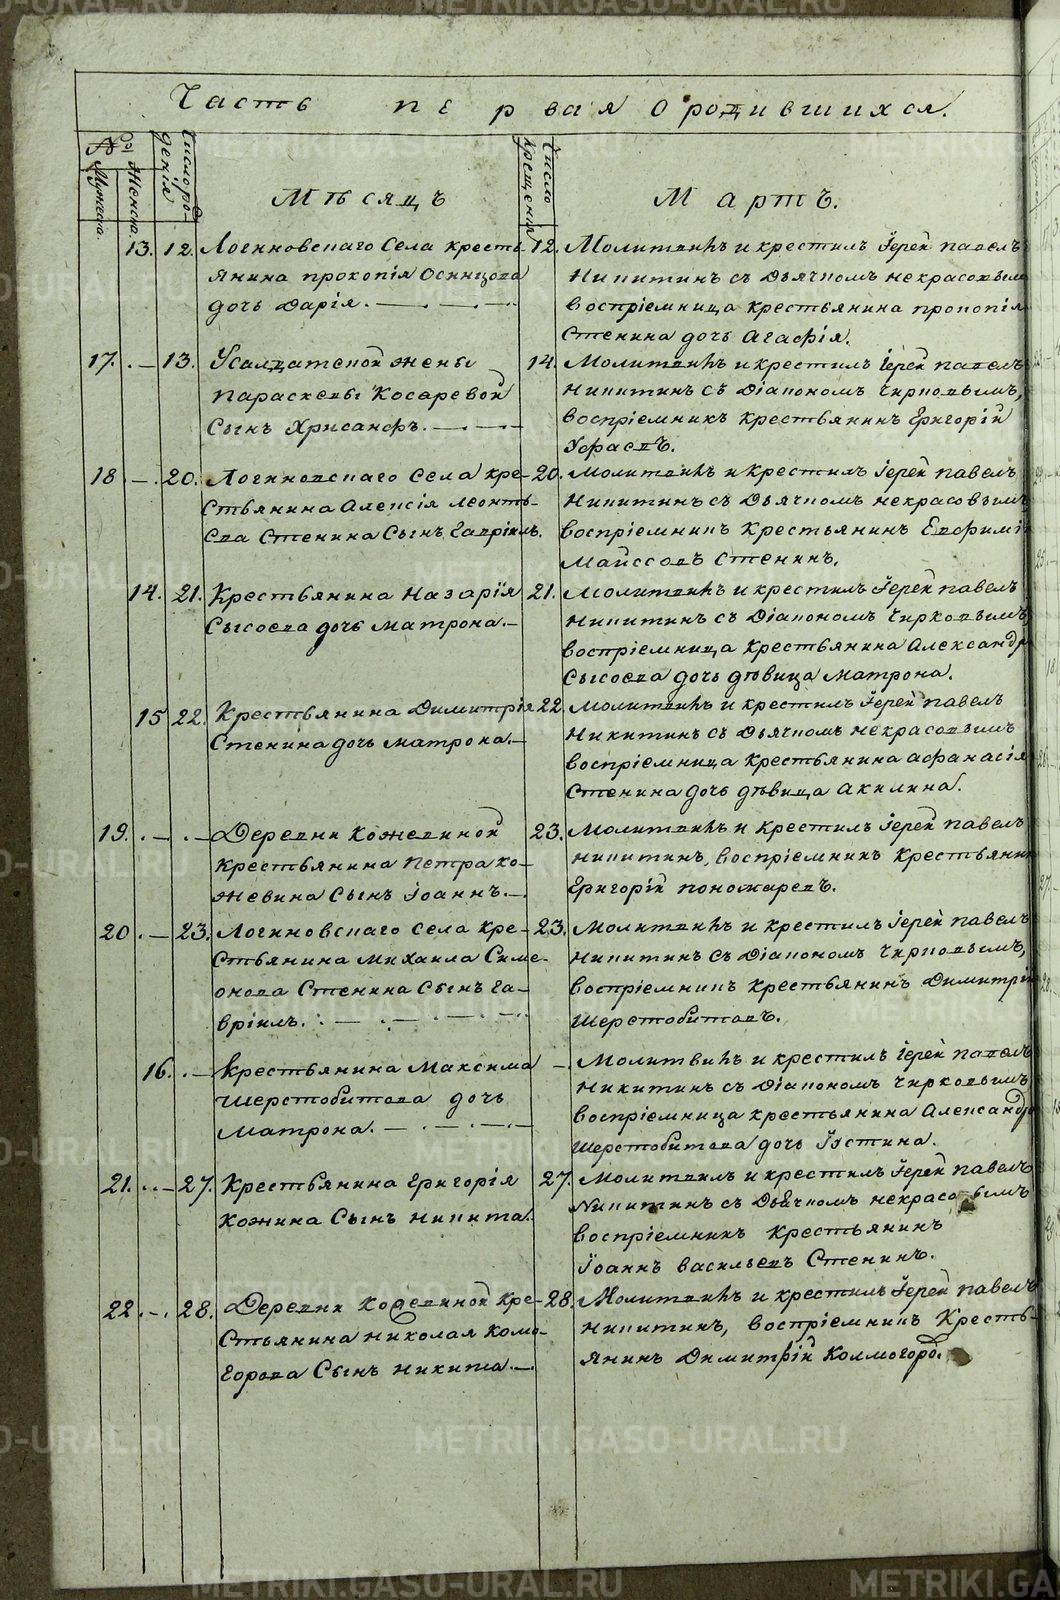 Часть первая о родившихся.
№
Мужеска.
Женска.
Число рождения
Месяцъ
Число крещения
Мартъ.
13. 12. Логиновскаго Села кресть-
янина прокопія Осинцова
дочь Дарія.
12. Молитвилъ и крестилъ Іерей павелъ
Никитинъ съ Дьячкомъ некрасовымъ
воспріемница крестьянина прокопія
Стенина дочь Агафія.
17. 13. У салдатской жены
параскевы Косаревой
Сынъ Хрисанфъ.
14. Молитвилъ и крестилъ Іерей павелъ
Никитинъ съ Діакономъ Чирковымъ,
воспріемникъ крестьянинъ Григорій
18 20. Логиновскаго Села кре-
стьянина Алексія Леонть-
ева Стенина Сынъ Гавріилъ.
20. Молитвилъ и крестилъ Іерей павелъ
Никитинъ съ Дьячкомъ некрасовымъ
воспріемникъ крестьянинъ Евфимій
Стенинъ.
14. 21. Крестьянина Назарія
Сысоева дочь Матрона.
21. Молитвилъ и крестилъ Іерей павелъ
Никитинъ съ Діакономъ Чирковымъ
воспріемница крестьянина Александра
Сысоева дочь девица Матрона.
15 22. Крестьянина Димитрія
Стенина дочь Матрона.
22. Молитвилъ и крестилъ Іерей павелъ
Никитинъ съ Дьячкомъ некрасовымъ
воспріемница крестьянина Афанасія
Стенина дочь девица Акилина.
19. Деревни Кожевиной
Крестьянина Петра Ко-
жевина Сынъ Іоаннъ.
23. Молитвилъ и крестилъ Іерей павелъ
Никитинъ, воспріемникъ крестьянинъ
Григорій пономаревъ.
20. 23. Логиновскаго Села кре-
стьянина Михаила Симе-
онова Стенина Сынъ Га-
вріилъ.
23. Молитвилъ и крестилъ Іерей павелъ
Никитинъ съ Діакономъ Чирковымъ,
воспріемникъ крестьянинъ Димитрій
Шерстобитовъ.
16. Крестьянина Максима
Шерстобитова дочь
Матрона.
Молитвилъ и крестилъ Іерей павелъ
Никитинъ съ Діакономъ Чирковымъ
воспріемница крестьянина Александра
Шерстобитова дочь Іустина.
21. 27. Крестьянина Григорія
Кожина Сынъ Никита.
27. Молитвилъ и крестилъ Іерей павелъ
Никитинъ съ Дьячкомъ некрасовымъ
воспріемникъ крестьянинъ
Іоаннъ васильевъ Стенинъ.
22. 28. Деревни Кожевиной кре-
стьянина Николая Колмо-
горова Сынъ Никита.
28. Молитвилъ и крестилъ Іерей павелъ
Никитинъ, воспріемникъ кресть-
янинъ Димитрій Колмогоровъ.
METRIKI.GASO-URAL.RU